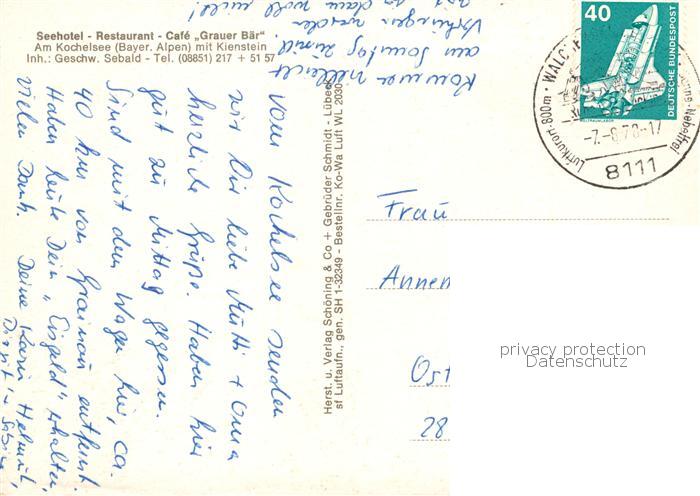 Seehotel - Restaurant - Café „Grauer Bär"
Am Kochelsee (Bayer. Alpen) mit Kienstein
Inh.: Geschw. Sebald - Tel. (08851) 217 + 51 57
Vom Kochelsee senden
wir Dir liebe Mutti + Oma
herzliche Grüße. Haben hier
gut zu Mittag gegessen.
Sind mit dem Wagen hier, ca.
40 km von Grainau entfernt.
Haben heute Dein „Eisgeld" erhalten,
vielen Dank. Deine Karin Helmut,
Birgit + Sabine
Kommen vielleicht
am Sonntag zurück
Herst. u. Verlag Schöning & Co + Gebrüder Schmidt - Lübeck
sf Luftaufn., gen. SH 1-32349 - Bestellnr. Ko-Wa Luft WL 2030
40
DEUTSCHE BUNDESPOST
Luftkurort 800m · WALCHE
Nebelfrei
-7.-8.78-17
8111
Frau
Annen
Ost
28
privacy protection
Datenschutz